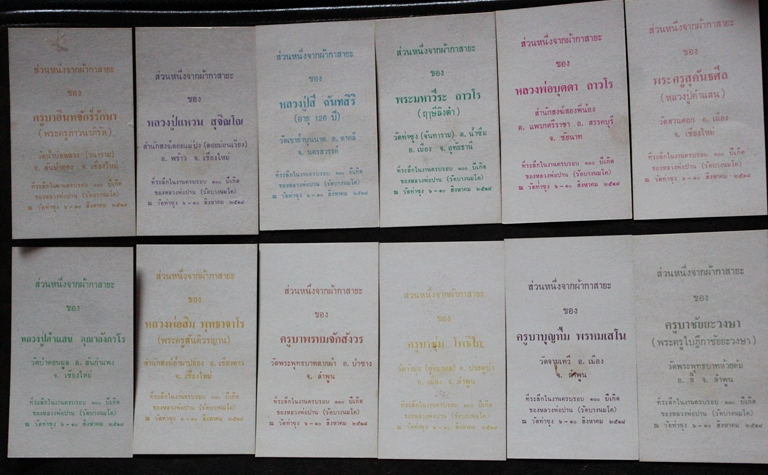 ส่วนหนึ่งจากผ้ากาสายะ
ของ
ครูบาอินทจักร์รักษา
(พระครูภาวนาภิรัต)
วัดน้ำบ่อหลวง (วนาราม)
อ. สันป่าตอง จ. เชียงใหม่
ที่ระลึกในงานครบรอบ ๑๐๐ ปีเกิด
ของหลวงพ่อปาน (วัดบางนมโค)
ณ วัดท่าซุง ๖–๑๐ สิงหาคม ๒๕๑๘
ส่วนหนึ่งจากผ้ากาสายะ
ของ
หลวงปู่แหวน สุจิณโณ
สำนักสงฆ์ดอยแม่ปั๋ง
อ. พร้าว จ. เชียงใหม่
ที่ระลึกในงานครบรอบ ๑๐๐ ปีเกิด
ของหลวงพ่อปาน (วัดบางนมโค)
ณ วัดท่าซุง ๖–๑๐ สิงหาคม ๒๕๑๘
ส่วนหนึ่งจากผ้ากาสายะ
ของ
หลวงปู่สี ฉันทสิริ
(อายุ 126 ปี)
วัดเขาถ้ำบุนนาค อ. ตาคลี
จ. นครสวรรค์
ที่ระลึกในงานครบรอบ ๑๐๐ ปีเกิด
ของหลวงพ่อปาน (วัดบางนมโค)
ณ วัดท่าซุง ๖–๑๐ สิงหาคม ๒๕๑๘
ส่วนหนึ่งจากผ้ากาสายะ
ของ
พระมหาวีระ ถาวโร
(ฤๅษีลิงดำ)
วัดท่าซุง (จันทาราม) ต. น้ำซึม
อ. เมือง จ. อุทัยธานี
ที่ระลึกในงานครบรอบ ๑๐๐ ปีเกิด
ของหลวงพ่อปาน (วัดบางนมโค)
ณ วัดท่าซุง ๖–๑๐ สิงหาคม ๒๕๑๘
ส่วนหนึ่งจากผ้ากาสายะ
ของ
หลวงพ่อบุดดา ถาวโร
สำนักสงฆ์สองพี่น้อง
ต. แพรกศรีราชา อ. สรรคบุรี
จ. ชัยนาท
ที่ระลึกในงานครบรอบ ๑๐๐ ปีเกิด
ของหลวงพ่อปาน (วัดบางนมโค)
ณ วัดท่าซุง ๖–๑๐ สิงหาคม ๒๕๑๘
ส่วนหนึ่งจากผ้ากาสายะ
ของ
พระครูสุคันธศีล
(หลวงปู่คำแสน)
วัดสวนดอก อ. เมือง
จ. เชียงใหม่
ที่ระลึกในงานครบรอบ ๑๐๐ ปีเกิด
ของหลวงพ่อปาน (วัดบางนมโค)
ณ วัดท่าซุง ๖–๑๐ สิงหาคม ๒๕๑๘
ส่วนหนึ่งจากผ้ากาสายะ
ของ
หลวงปู่คำแสน คุณาลังกาโร
วัดป่าดอนมูล อ. สันกำแพง
จ. เชียงใหม่
ที่ระลึกในงานครบรอบ ๑๐๐ ปีเกิด
ของหลวงพ่อปาน (วัดบางนมโค)
ณ วัดท่าซุง ๖–๑๐ สิงหาคม ๒๕๑๘
ส่วนหนึ่งจากผ้ากาสายะ
ของ
หลวงพ่อสิม พุทธาจาโร
(พระครูสันติวรญาน)
สำนักสงฆ์ถ้ำผาปล่อง อ. เชียงดาว
จ. เชียงใหม่
ที่ระลึกในงานครบรอบ ๑๐๐ ปีเกิด
ของหลวงพ่อปาน (วัดบางนมโค)
ณ วัดท่าซุง ๖–๑๐ สิงหาคม ๒๕๑๘
ส่วนหนึ่งจากผ้ากาสายะ
ของ
ครูบาพรหมจักสังวร
วัดพระพุทธบาทตากผ้า อ. ป่าซาง
จ. ลำพูน
ที่ระลึกในงานครบรอบ ๑๐๐ ปีเกิด
ของหลวงพ่อปาน (วัดบางนมโค)
ณ วัดท่าซุง ๖–๑๐ สิงหาคม ๒๕๑๘
ส่วนหนึ่งจากผ้ากาสายะ
ของ
ครูบาชุ่ม โพธิโก
วัดวังมุย ต. ประตูป่า
อ. เมือง จ. ลำพูน
ที่ระลึกในงานครบรอบ ๑๐๐ ปีเกิด
ของหลวงพ่อปาน (วัดบางนมโค)
ณ วัดท่าซุง ๖–๑๐ สิงหาคม ๒๕๑๘
ส่วนหนึ่งจากผ้ากาสายะ
ของ
ครูบาบุญทืม พรหมเสโน
วัดจามเทวี อ. เมือง
จ. ลำพูน
ที่ระลึกในงานครบรอบ ๑๐๐ ปีเกิด
ของหลวงพ่อปาน (วัดบางนมโค)
ณ วัดท่าซุง ๖–๑๐ สิงหาคม ๒๕๑๘
ส่วนหนึ่งจากผ้ากาสายะ
ของ
ครูบาชัยยะวงษา
(พระครูใบฎีกาชัยยะวงษา)
วัดพระพุทธบาทห้วยต้ม
อ. ลี้ จ. ลำพูน
ที่ระลึกในงานครบรอบ ๑๐๐ ปีเกิด
ของหลวงพ่อปาน (วัดบางนมโค)
ณ วัดท่าซุง ๖–๑๐ สิงหาคม ๒๕๑๘